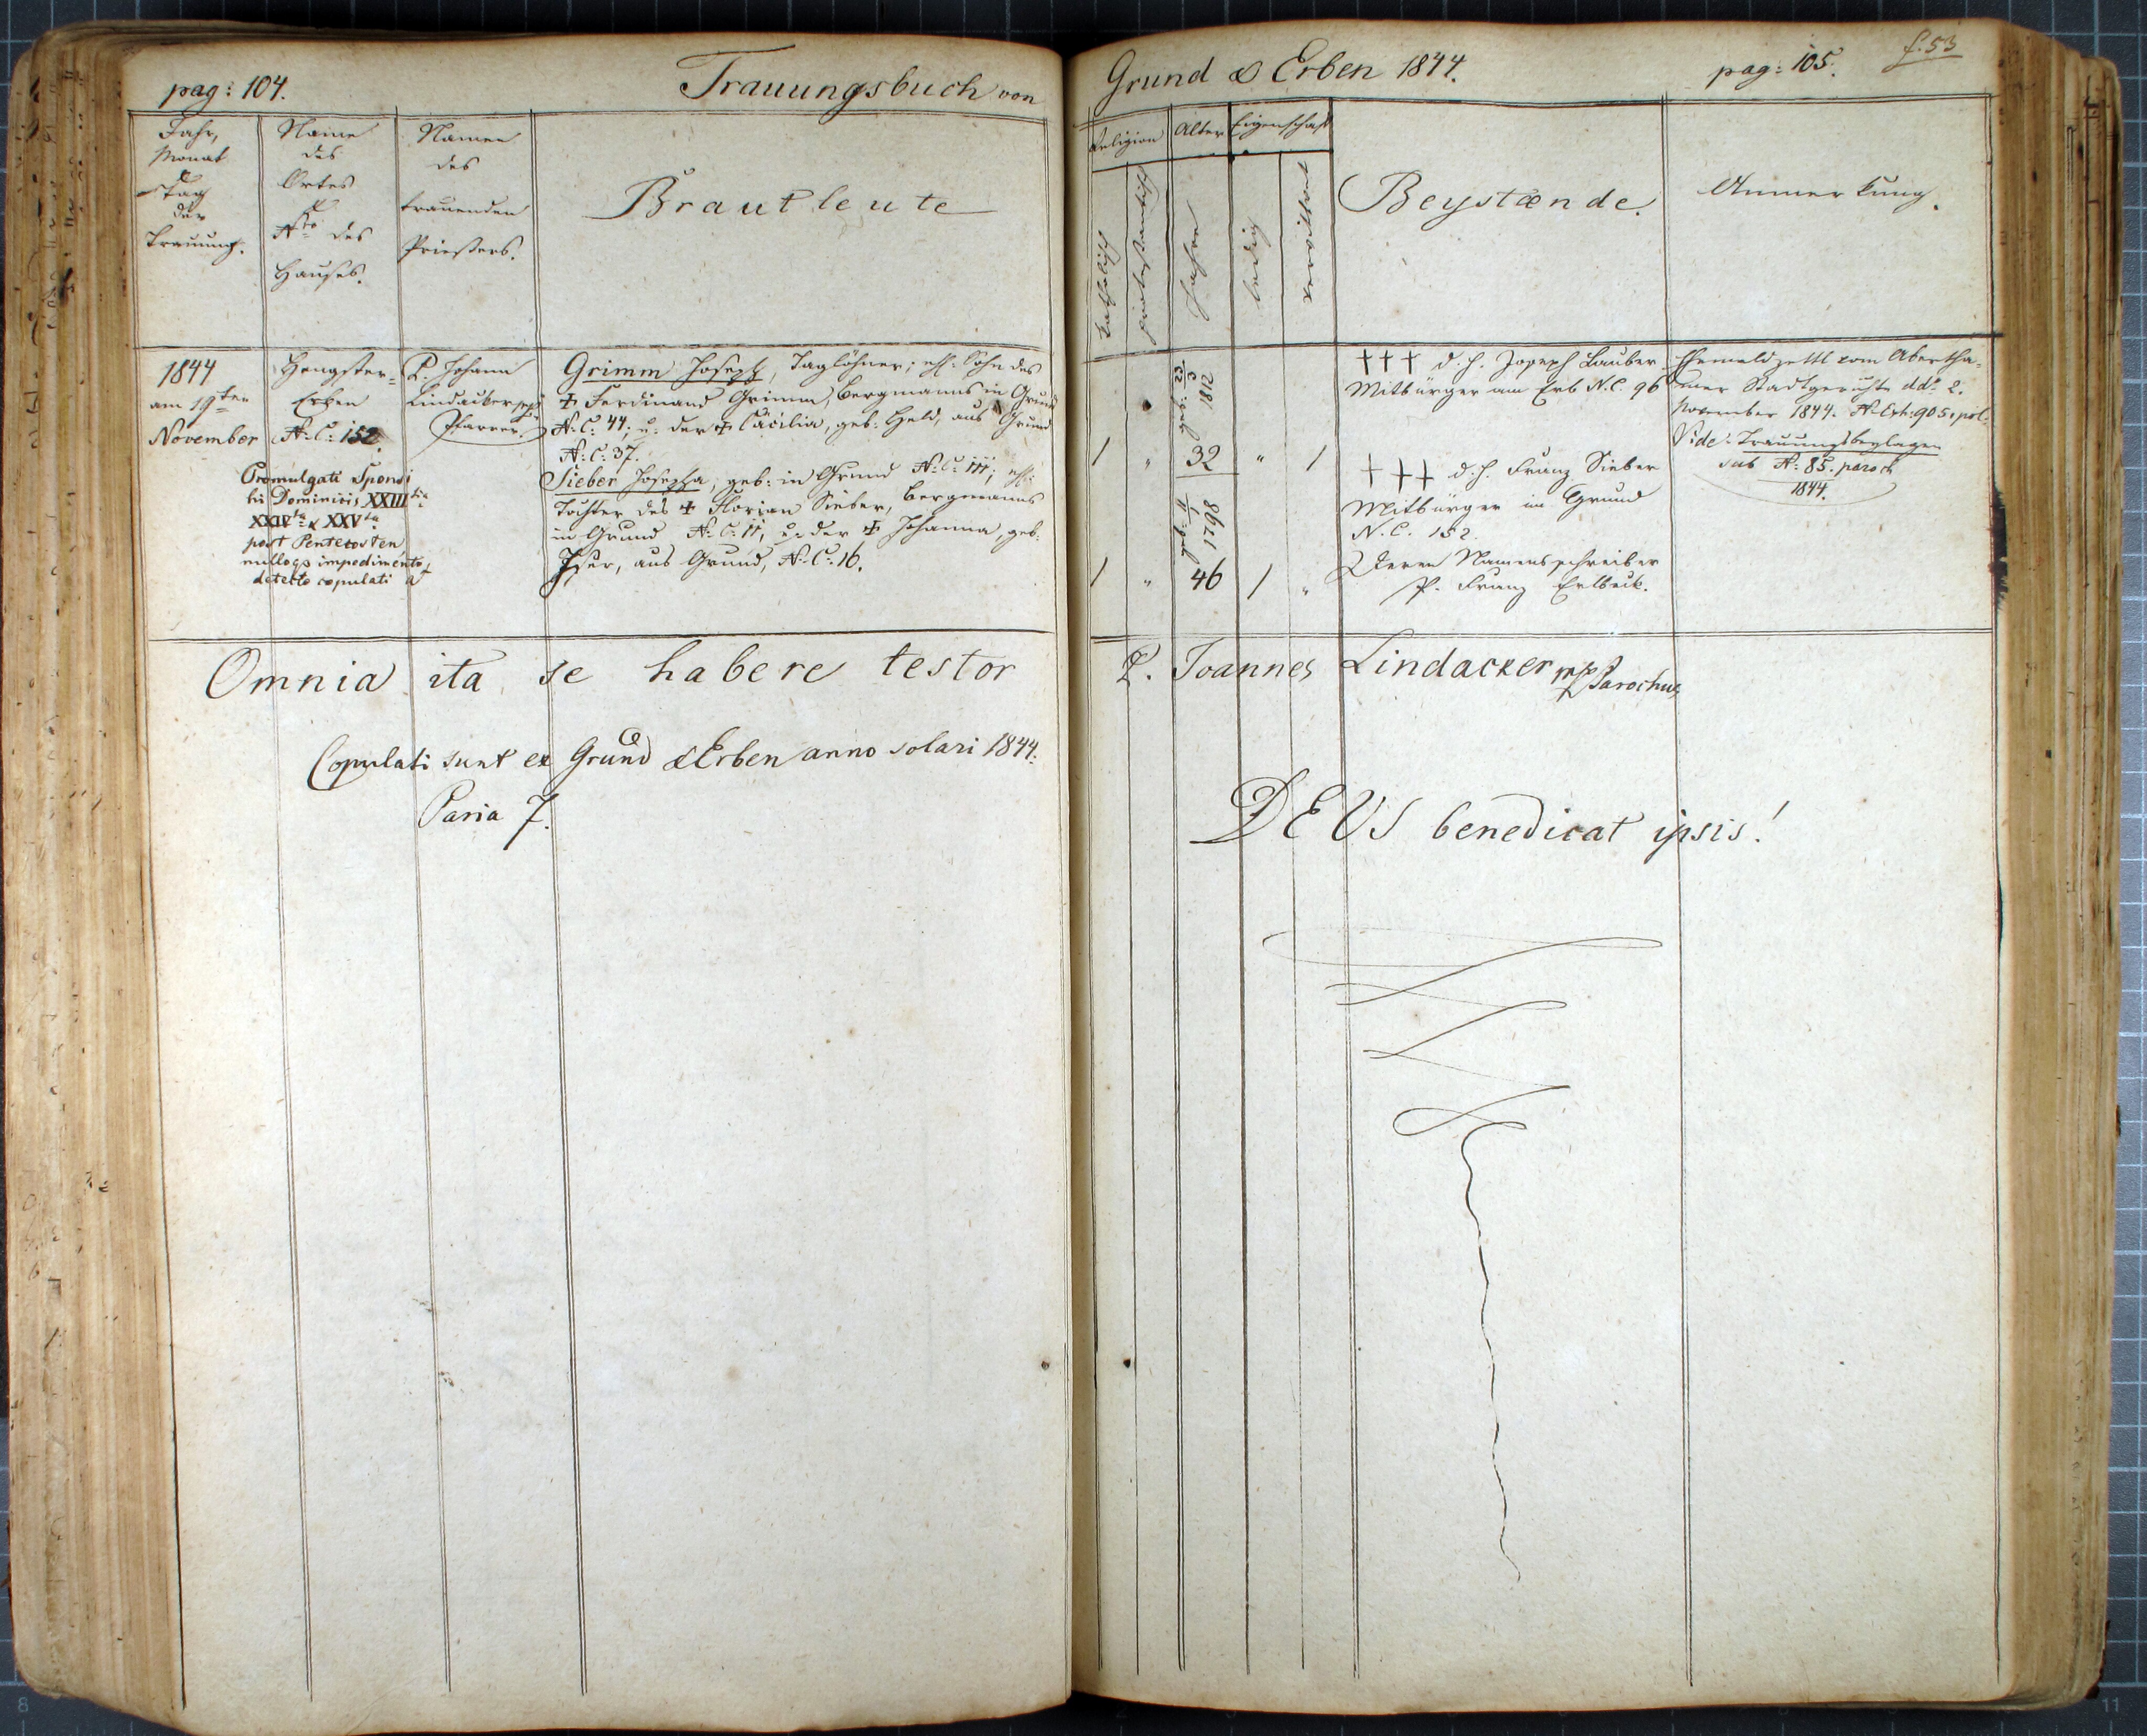 pag: 104.
Trauungsbuch von
Jahr,
Monat
&
Tag
der
Trauung.
Name
des
Ortes
&
Nro des
Hauses.
Namen
des
trauenden
Priesters.
Brautleute
1844
am 19ten
November
Hengster=
Erben
N: C: 152.
P. Johann
Lindacker mp
Pfarrer.
Grimm Joseph, Taglöhner; ehl: Sohn des
✝ Ferdinand Grimm, Bergmanns in Grund
N: C: 44; u: der ✝ Cäcilia, geb: Held, aus Grund
N: C: 37.
Sieber Josepha, geb: in Grund N: C: 111; ehl:
Tochter des ✝ Florian Sieber, Bergmanns
in Grund N: C: 11, u: der ✝ Johanna, geb:
aus Grund, N: C: 16.
Promulgati Sponsi
Dominicis XXIIItia
XXIVta & XXVta
post Pentecosten
nulloqs impedimento
detecto copulati
Omnia ita se habere testor
Copulati sunt ex Grund & Erben anno solari 1844.
Paria 7.
Grund & Erben 1844.
pag: 105.
f. 53
Religion
Alter
Eigenschaft
katholisch
protestantisch
Jahre
ledig
verwittwet
Beystænde.
Anmerkung.
geb: 23/3 1812
1 " 32 " 1
geb: 11/1 1798
1 " 46 1 "
††† d. h. Joseph Lauber
Mitbürger am Erb N. C. 96
††† d. h. Franz Sieber
Mitbürger in Grund
N. C. 152.
Deren Namensschreiber
P. Franz Erlbeck.
vom Abertha=
mer Stadtgerichte ddo 2.
November 1844. N. Exh: 905. pol:
Vide: Trauungsbeylagen
sub N: 85. paroch
1844.
P. Joannes Lindacker mp Parochus
DEUS benedicat ipsis!